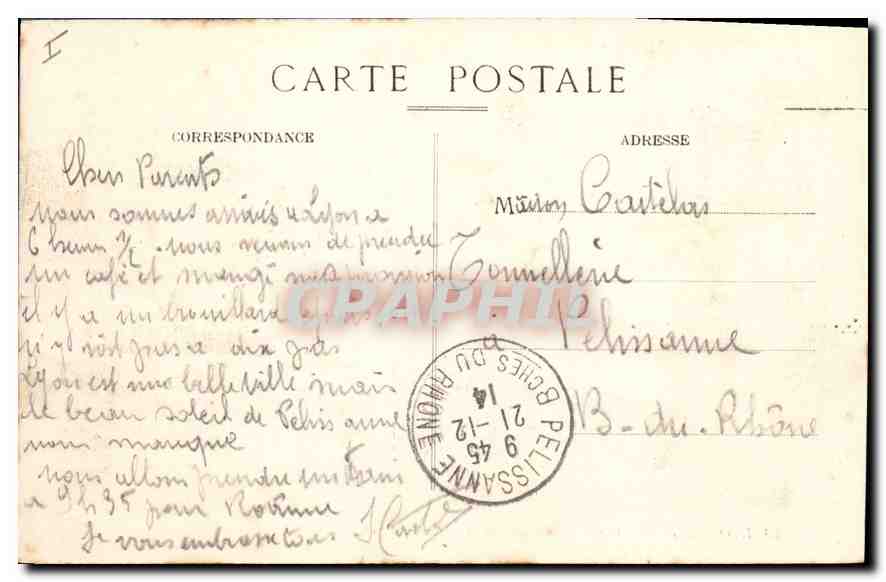 I
CARTE POSTALE
CORRESPONDANCE
ADRESSE
Chers Parents
nous sommes arrivés a Lyon a
6 heures 1/2. nous venons de prendre
un café et mangé
il y a un brouillard
n'y voit pas a dix pas
Lyon est une belle ville mais
le beau soleil de Pélissanne
nous manque
nous allons prendre un train
a 9h35 pour Roanne
Je vous embrasse tous
Maison Castelas
Tonnellerie
à Pelissanne
B-du-Rhône
PELISSANNE BCHES DU RHÔNE
9 45
21-12
14
CPAPHIL